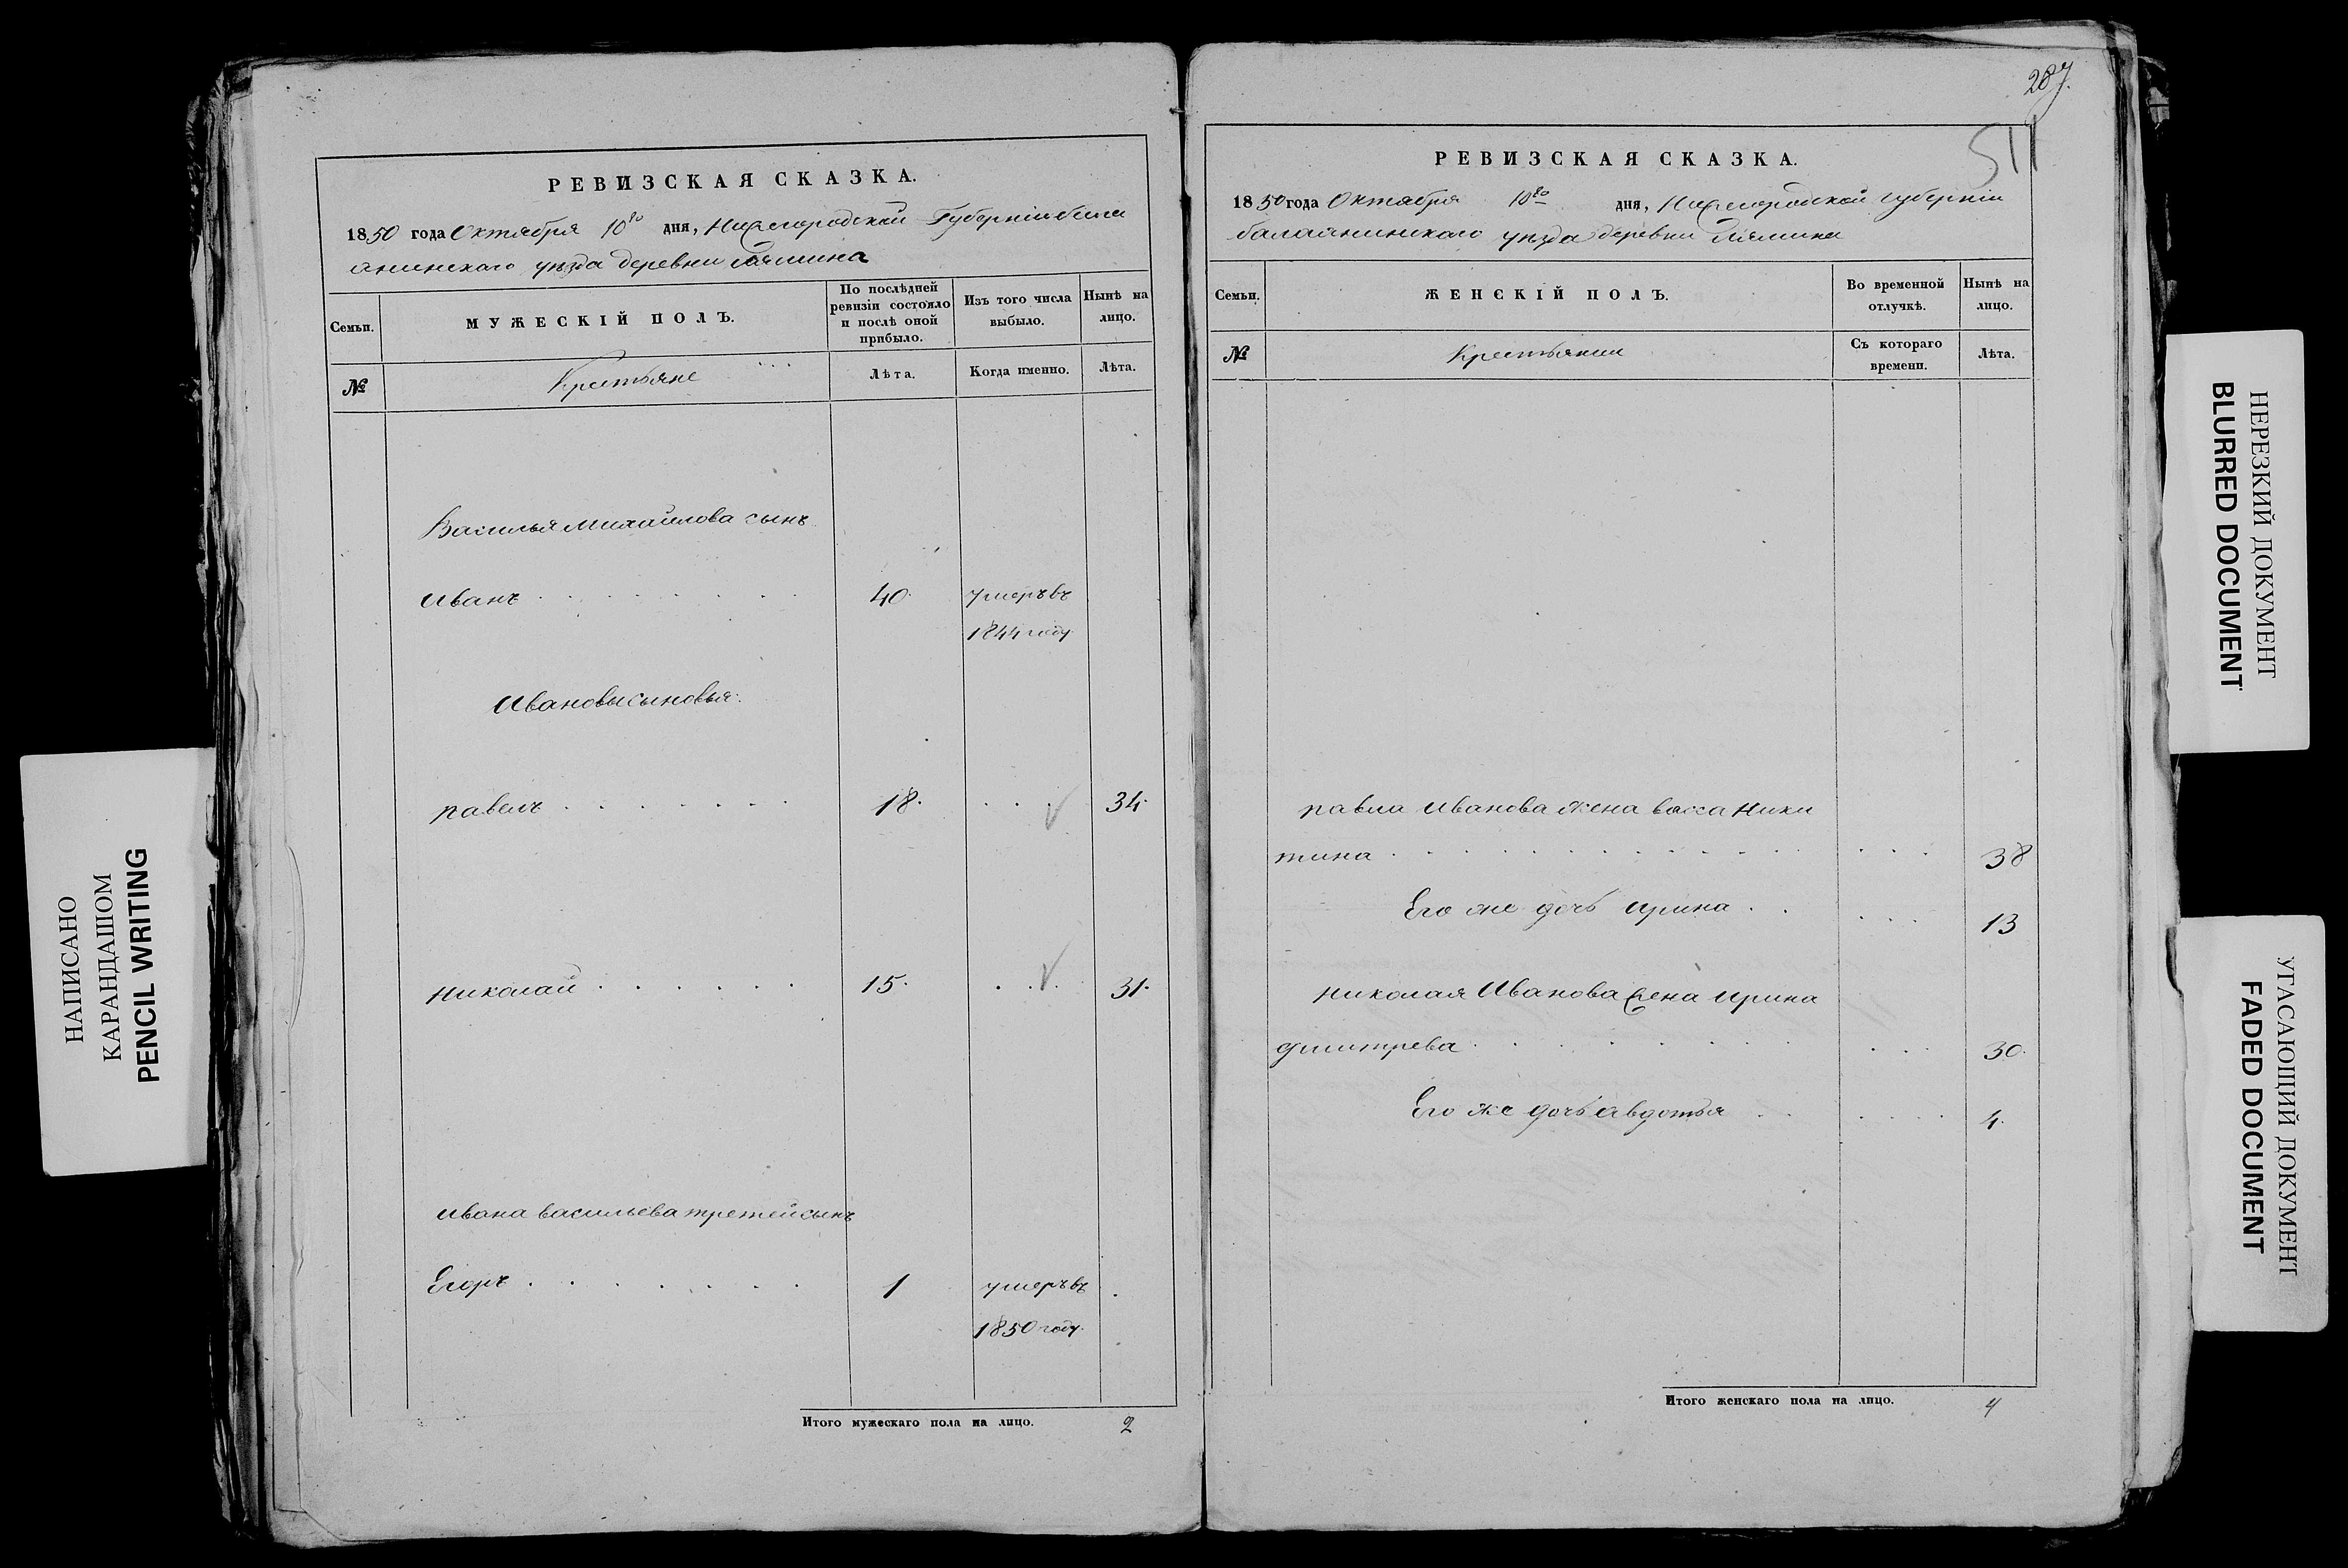 РЕВИЗСКАЯ СКАЗКА.
1850 года Октября 10го дня, Нижегородской Губерніи бала
анинскаго уѣзда деревни
Семьи.
МУЖЕСКІЙ ПОЛЪ.
По послѣдней ревизіи состояло и послѣ оной прибыло.
Изъ того числа выбыло.
Нынѣ на лицо.
№
Крестьяне
Лѣта.
Когда именно.
Лѣта.
Василья Михайлова сынъ
Иванъ . . . . . . . 40. умеръ въ
1844 году
Ивановы сыновья:
павелъ . . . . . . . 18. . . . 34.
николай . . . . . . 15. . . . 31.
ивана васильева третей сынъ
Егоръ . . . . . . . 1 умеръ въ .
1850 году.
Итого мужескаго пола на лицо. 2
287.
511
РЕВИЗСКАЯ СКАЗКА.
1850 года Октября 10го дня, Нижегородской губерніи
балаанинскаго уѣзда деревни
Семьи.
ЖЕНСКІЙ ПОЛЪ.
Во временной отлучкѣ.
Нынѣ на лицо.
№
Крестьянки
Съ котораго времени.
Лѣта.
павла Иванова жена васса Ники
тина . . . . . . . . . . . . . . 38
Его же дочь ирина . . . . . 13
николая Иванова жена ирина
дмитрева . . . . . . . . . . 30.
Его же дочь авдотья . . . . . . 4.
Итого женскаго пола на лицо. 4
НАПИСАНО
КАРАНДАШОМ
PENCIL WRITING
НЕРЕЗКИЙ ДОКУМЕНТ
BLURRED DOCUMENT
УГАСАЮЩИЙ ДОКУМЕНТ
FADED DOCUMENT